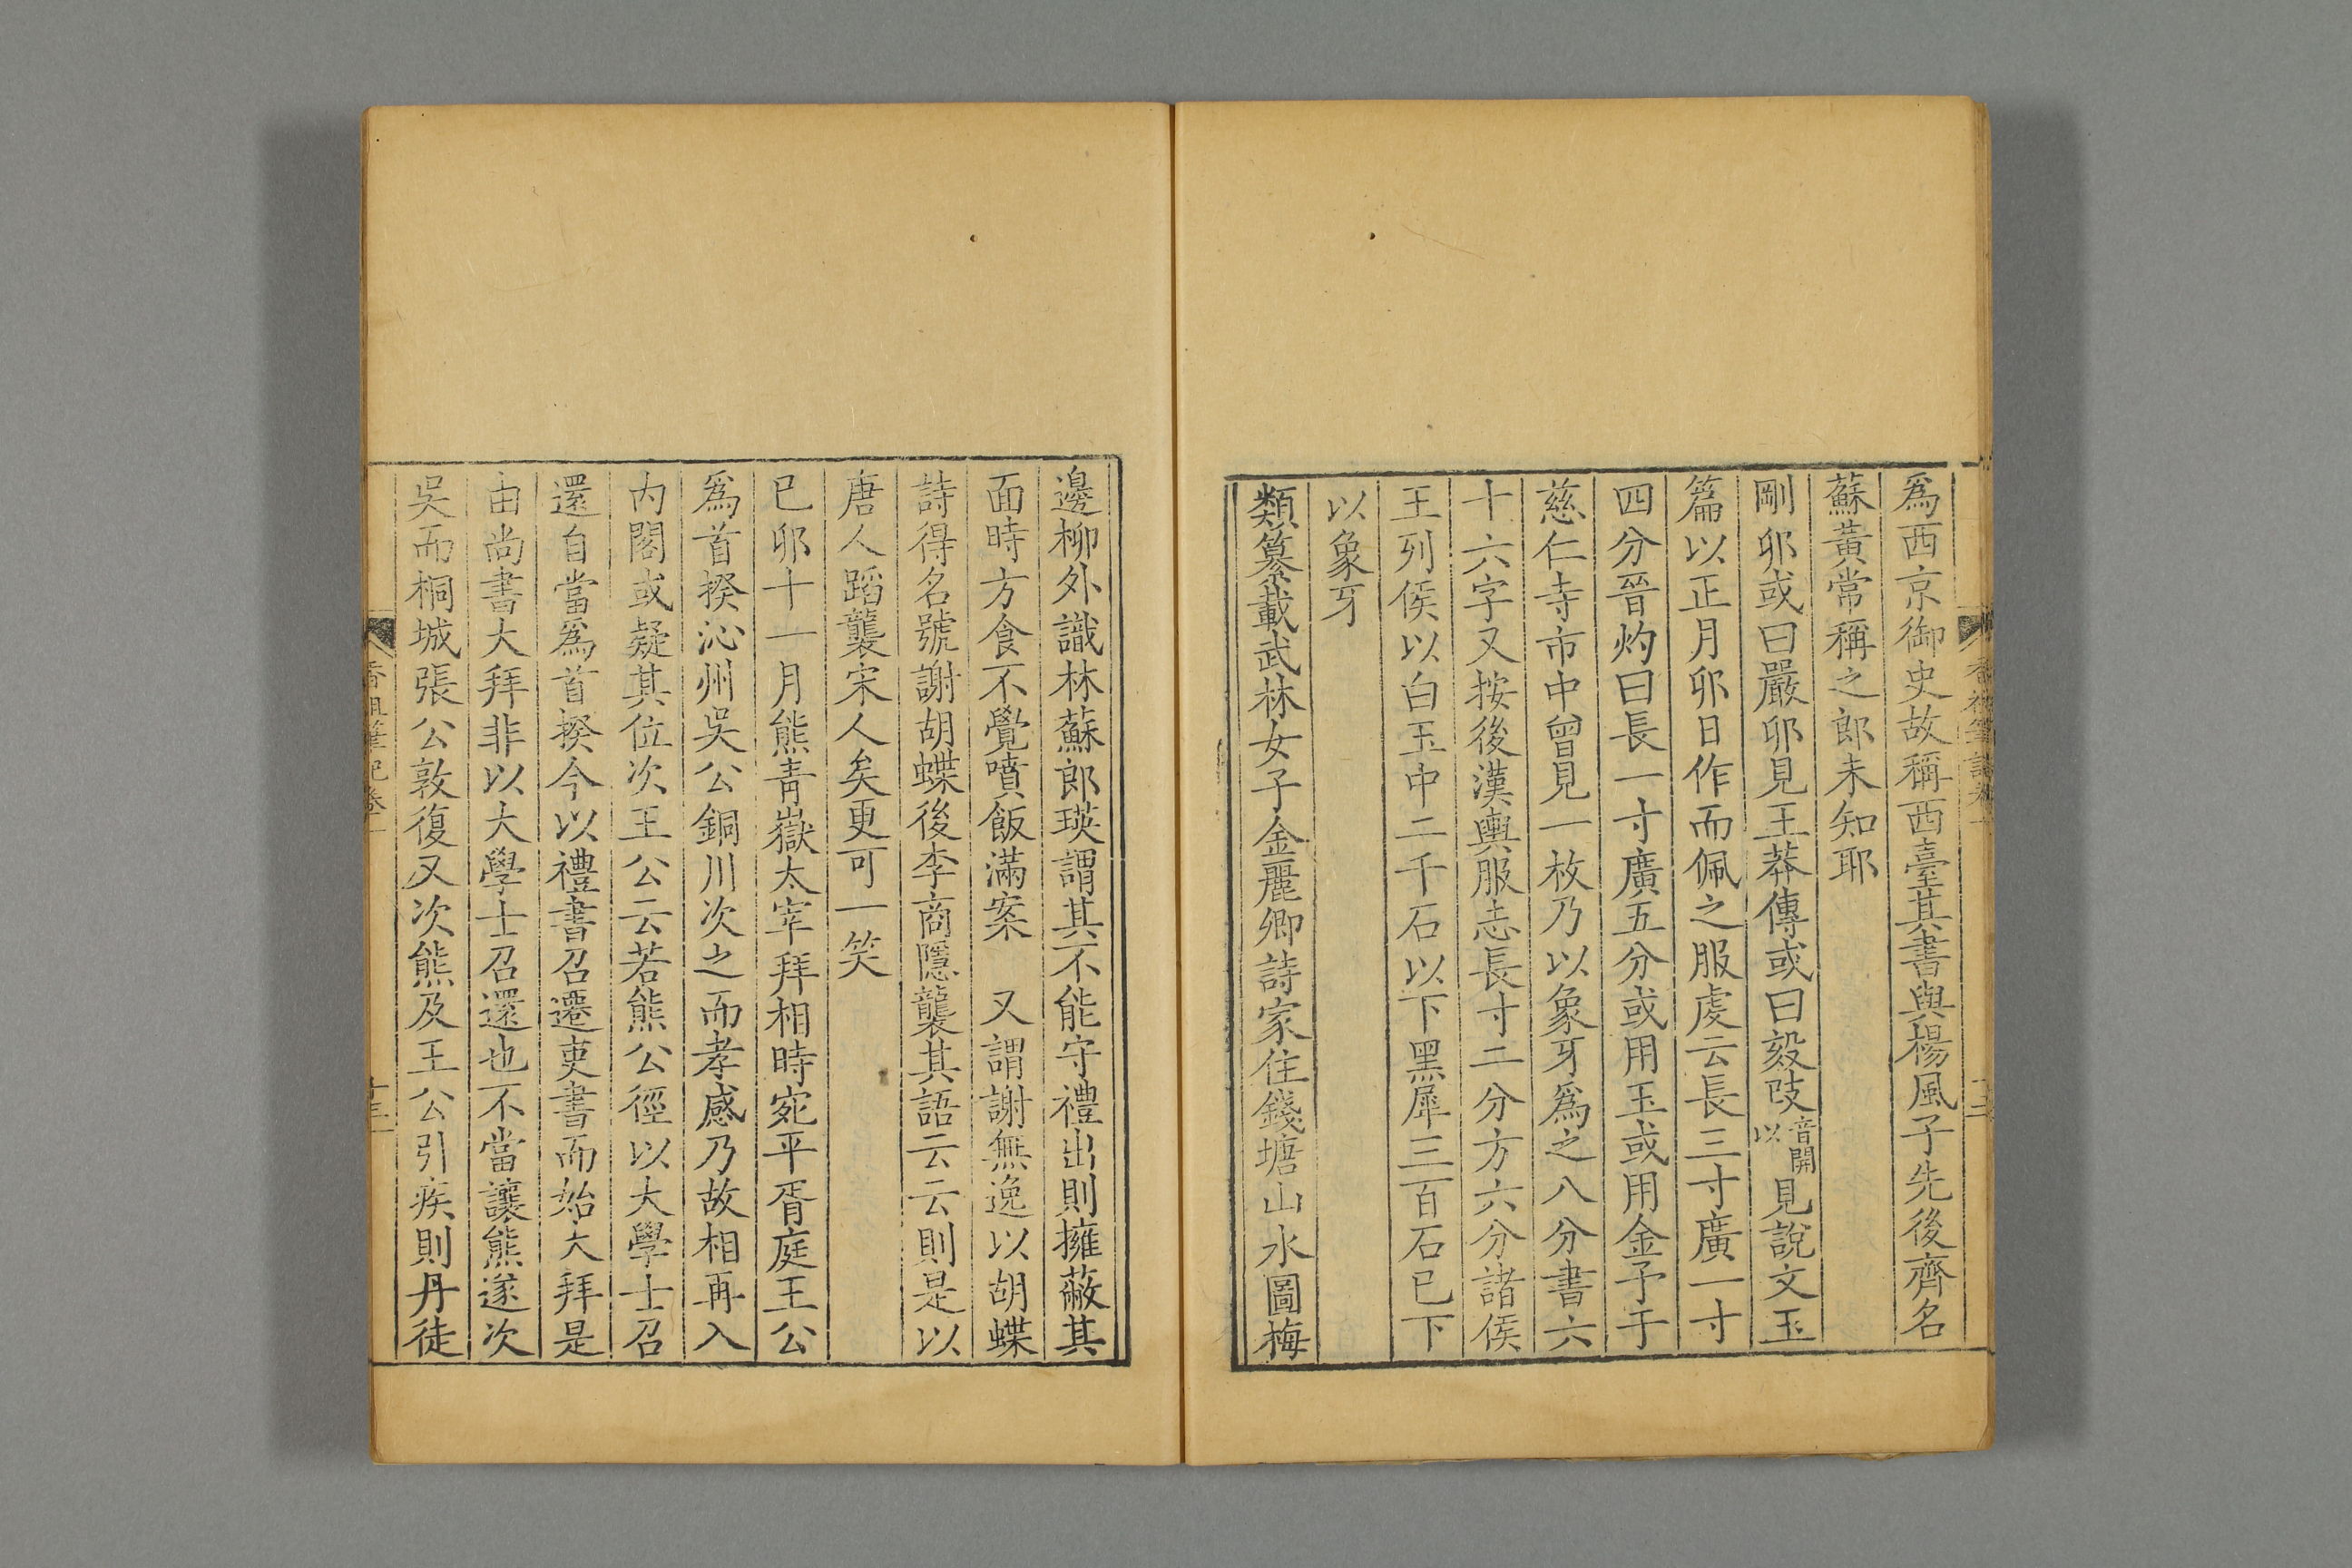 爲西京御史故稱西臺其書與楊風子先後齊名
蘇黃常稱之郎未知耶
剛卯或曰嚴卯見王莽傳或曰毅𢻫音開以見說文玉
篇以正月卯日作而佩之服虔云長三寸廣一寸
四分晉灼曰長一寸廣五分或用玉或用金予于
慈仁寺市中曾見一枚乃以象牙爲之八分書六
十六字又按後漢輿服志長寸二分方六分諸侯
王列侯以白玉中二千石以下黑犀三百石已下
以象牙
類纂載武林女子金麗卿詩家住錢塘山水圖梅
邊柳外識林蘇郎瑛謂其不能守禮出則擁蔽其
面時方食不覺噴飯滿案　又謂謝無逸以胡蝶
詩得名號謝胡蝶後李商隱襲其語云云則是以
唐人蹈襲宋人矣更可一笑
已卯十一月熊青嶽太宰拜相時宛平胥庭王公
爲首揆沁州吳公銅川次之而孝感乃故相再入
內閣或疑其位次王公云若熊公徑以大學士召
還自當爲首揆今以禮書召遷吏書而始大拜是
由尚書大拜非以大學士召還也不當讓熊遂次
吳而桐城張公敦復又次熊及王公引疾則丹徒